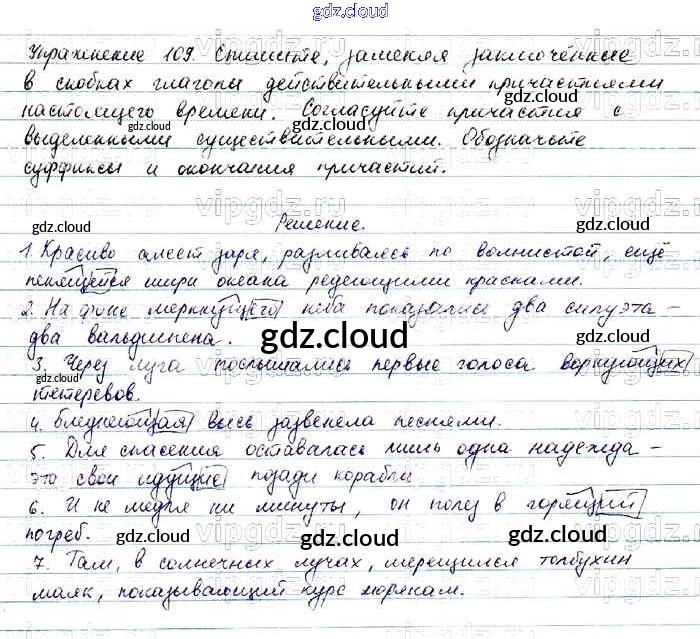 gdz.cloud
Упражнение 109. Спишите, заменяя заключённые
в скобках глаголы действительными причастиями
настоящего времени. Согласуйте причастия с
выделенными существительными. Обозначьте
суффиксы и окончания причастий.
Решение.
1. Красиво алеет заря, разливаясь по волнистой, ещё
пенящейся шири океана редеющими красками.
2. На фоне меркнущего неба показались два силуэта –
два вальдшнепа.
3. Через луга послышались первые голоса воркующих
тетеревов.
4. Бледнеющая высь зазвенела песнями.
5. Для спасения оставалась лишь одна надежда –
это свои идущие позади корабли
6. И не медля ни минуты, он полез в горящий
погреб.
7. Там, в солнечных лучах, мерещился толбухин
маяк, показывающий курс морякам.